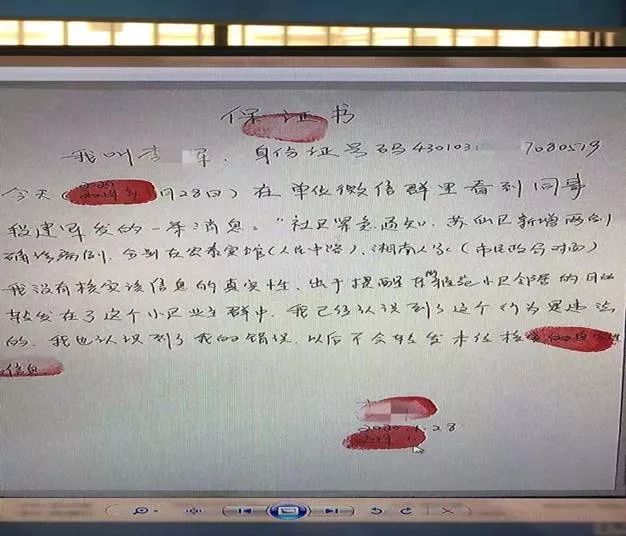 保证书
我叫李 军，身份证号码430103 7080519
今天（2020年1月28日）在单位微信群里看到同事
发的一条消息。“社区紧急通知，苏仙区新增两例
确诊病例，分别在宏泰宾馆（人民中路）、湘南人家（市医院对面）
我没有核实该信息的真实性，出于提醒在雅苑小区邻居的目的
转发在了这个小区业主群中，我已经认识到了这个行为是违法
的，我也认识到了我的错误，以后不会转发未经核实的
信息
2020.1.28
2019.1.